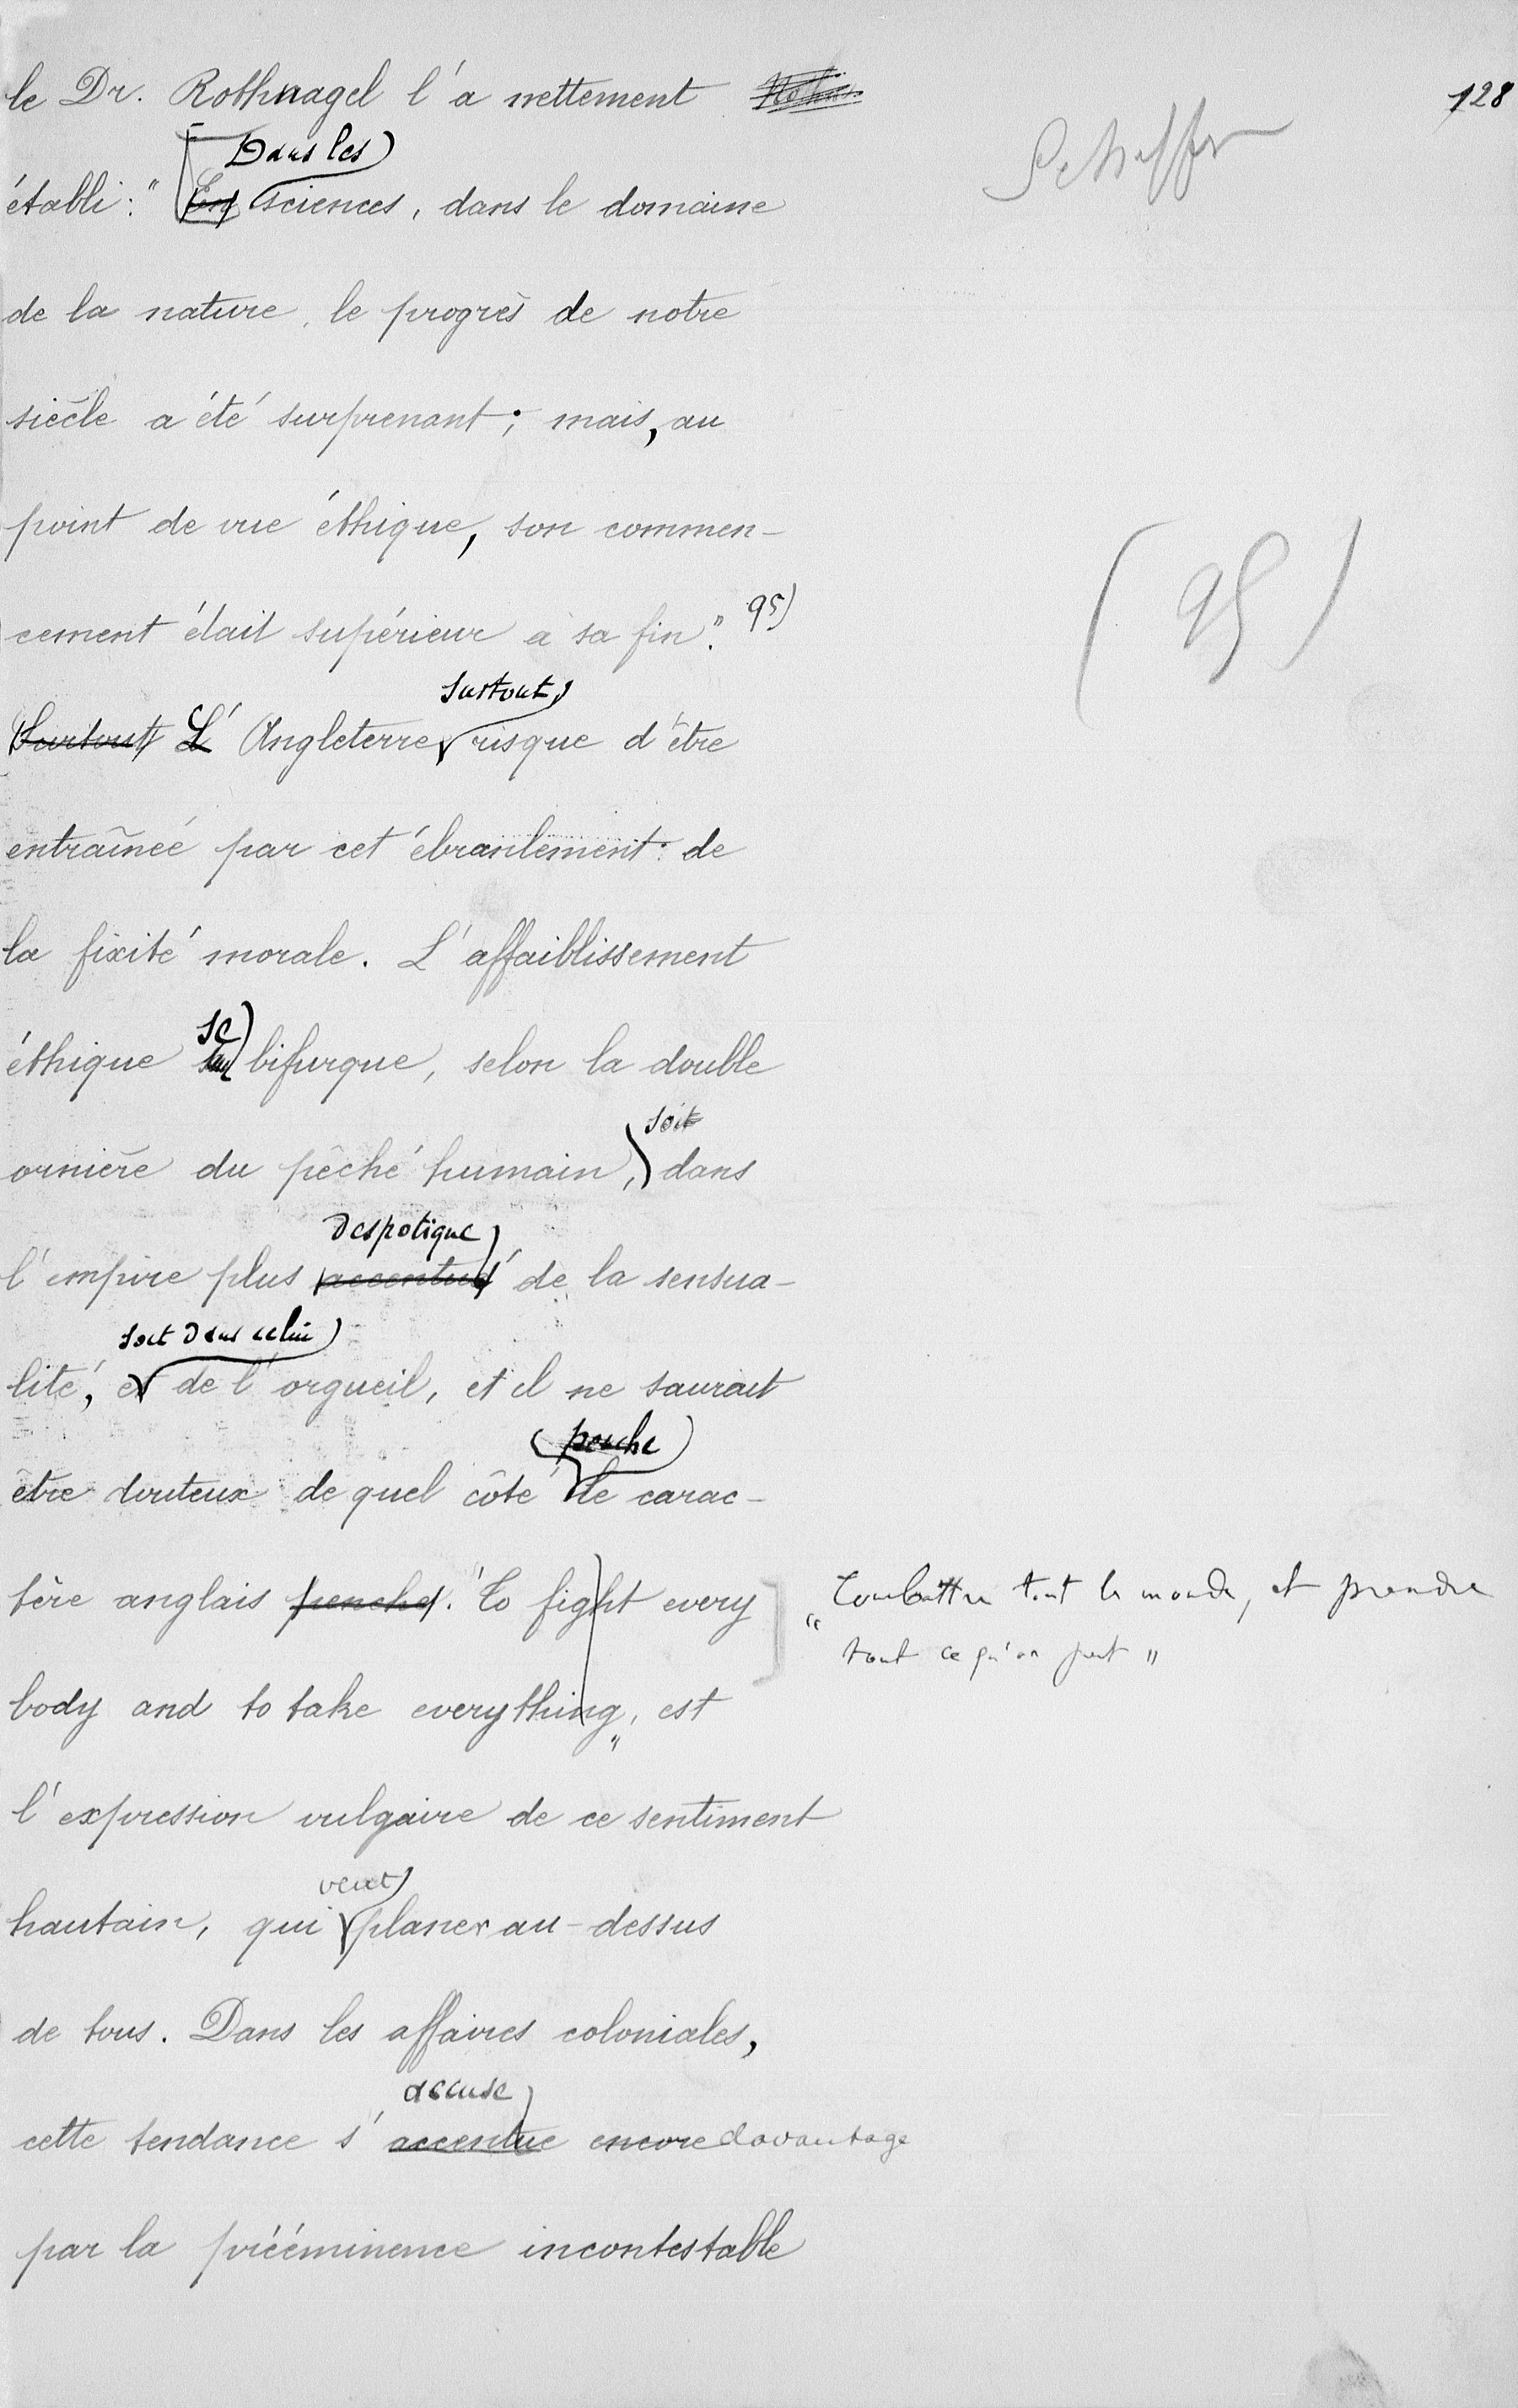 128
le Dr. Rothnagel l'a nettement
Scheffer
Dans les
établi: " En sciences, dans le domaine
de la nature, le progrès de notre
siècle a été surprenant; mais, au
point de vue éthique, son commen-
cement était supérieur à sa fin". 95)
(95)
surtout,
Surtout L'Angleterre risque d'être
entraînée par cet ébranlement de
la fixité morale. L'affaiblissement
se
éthique bifurque, selon la double
soit
ornière du péché humain, dans
despotique
l'empire plus accentué de la sensua-
soit dans celui
lité, et de l'orgueil, et il ne saurait
penche
être douteux de quel côté le carac-
tère anglais penche. "To fight every
body and to take everything", est
"Combattre tout le monde, et prendre
tout ce qu'on peut"
l'expression vulgaire de ce sentiment
veut
hautain, qui planer au-dessus
de tous. Dans les affaires coloniales,
accuse
cette tendance s'accentue encore davantage
par la prééminence incontestable